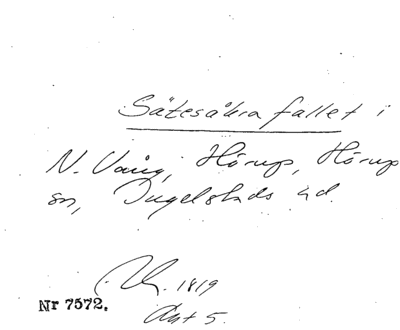 Sätesåkra fallet i
N. Vång, Hörup, Hörup
sn, Ingelstads hd.
1819
Nr 7572.
Akt 5.